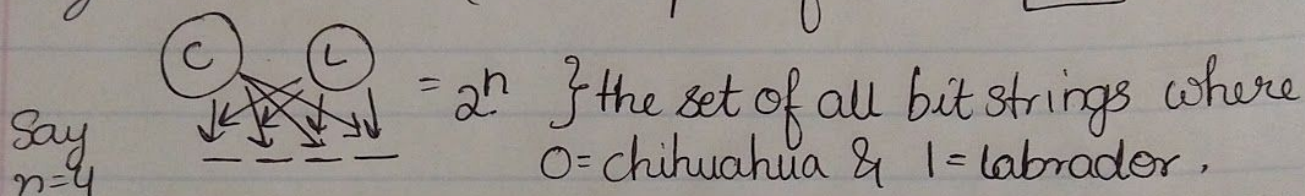 C L
= 2^n } the set of all bit strings where
Say
n=4
0 = chihuahua & 1 = labrador.